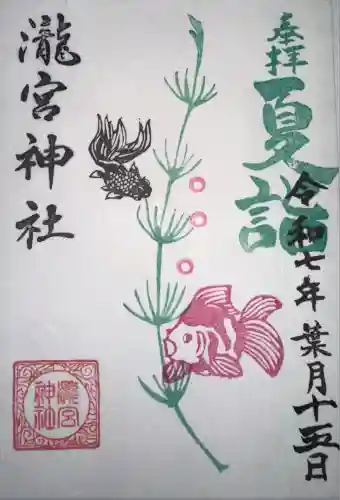 奉拝
夏詣
令和七年 葉月十五日
瀧宮神社
瀧宮
神社